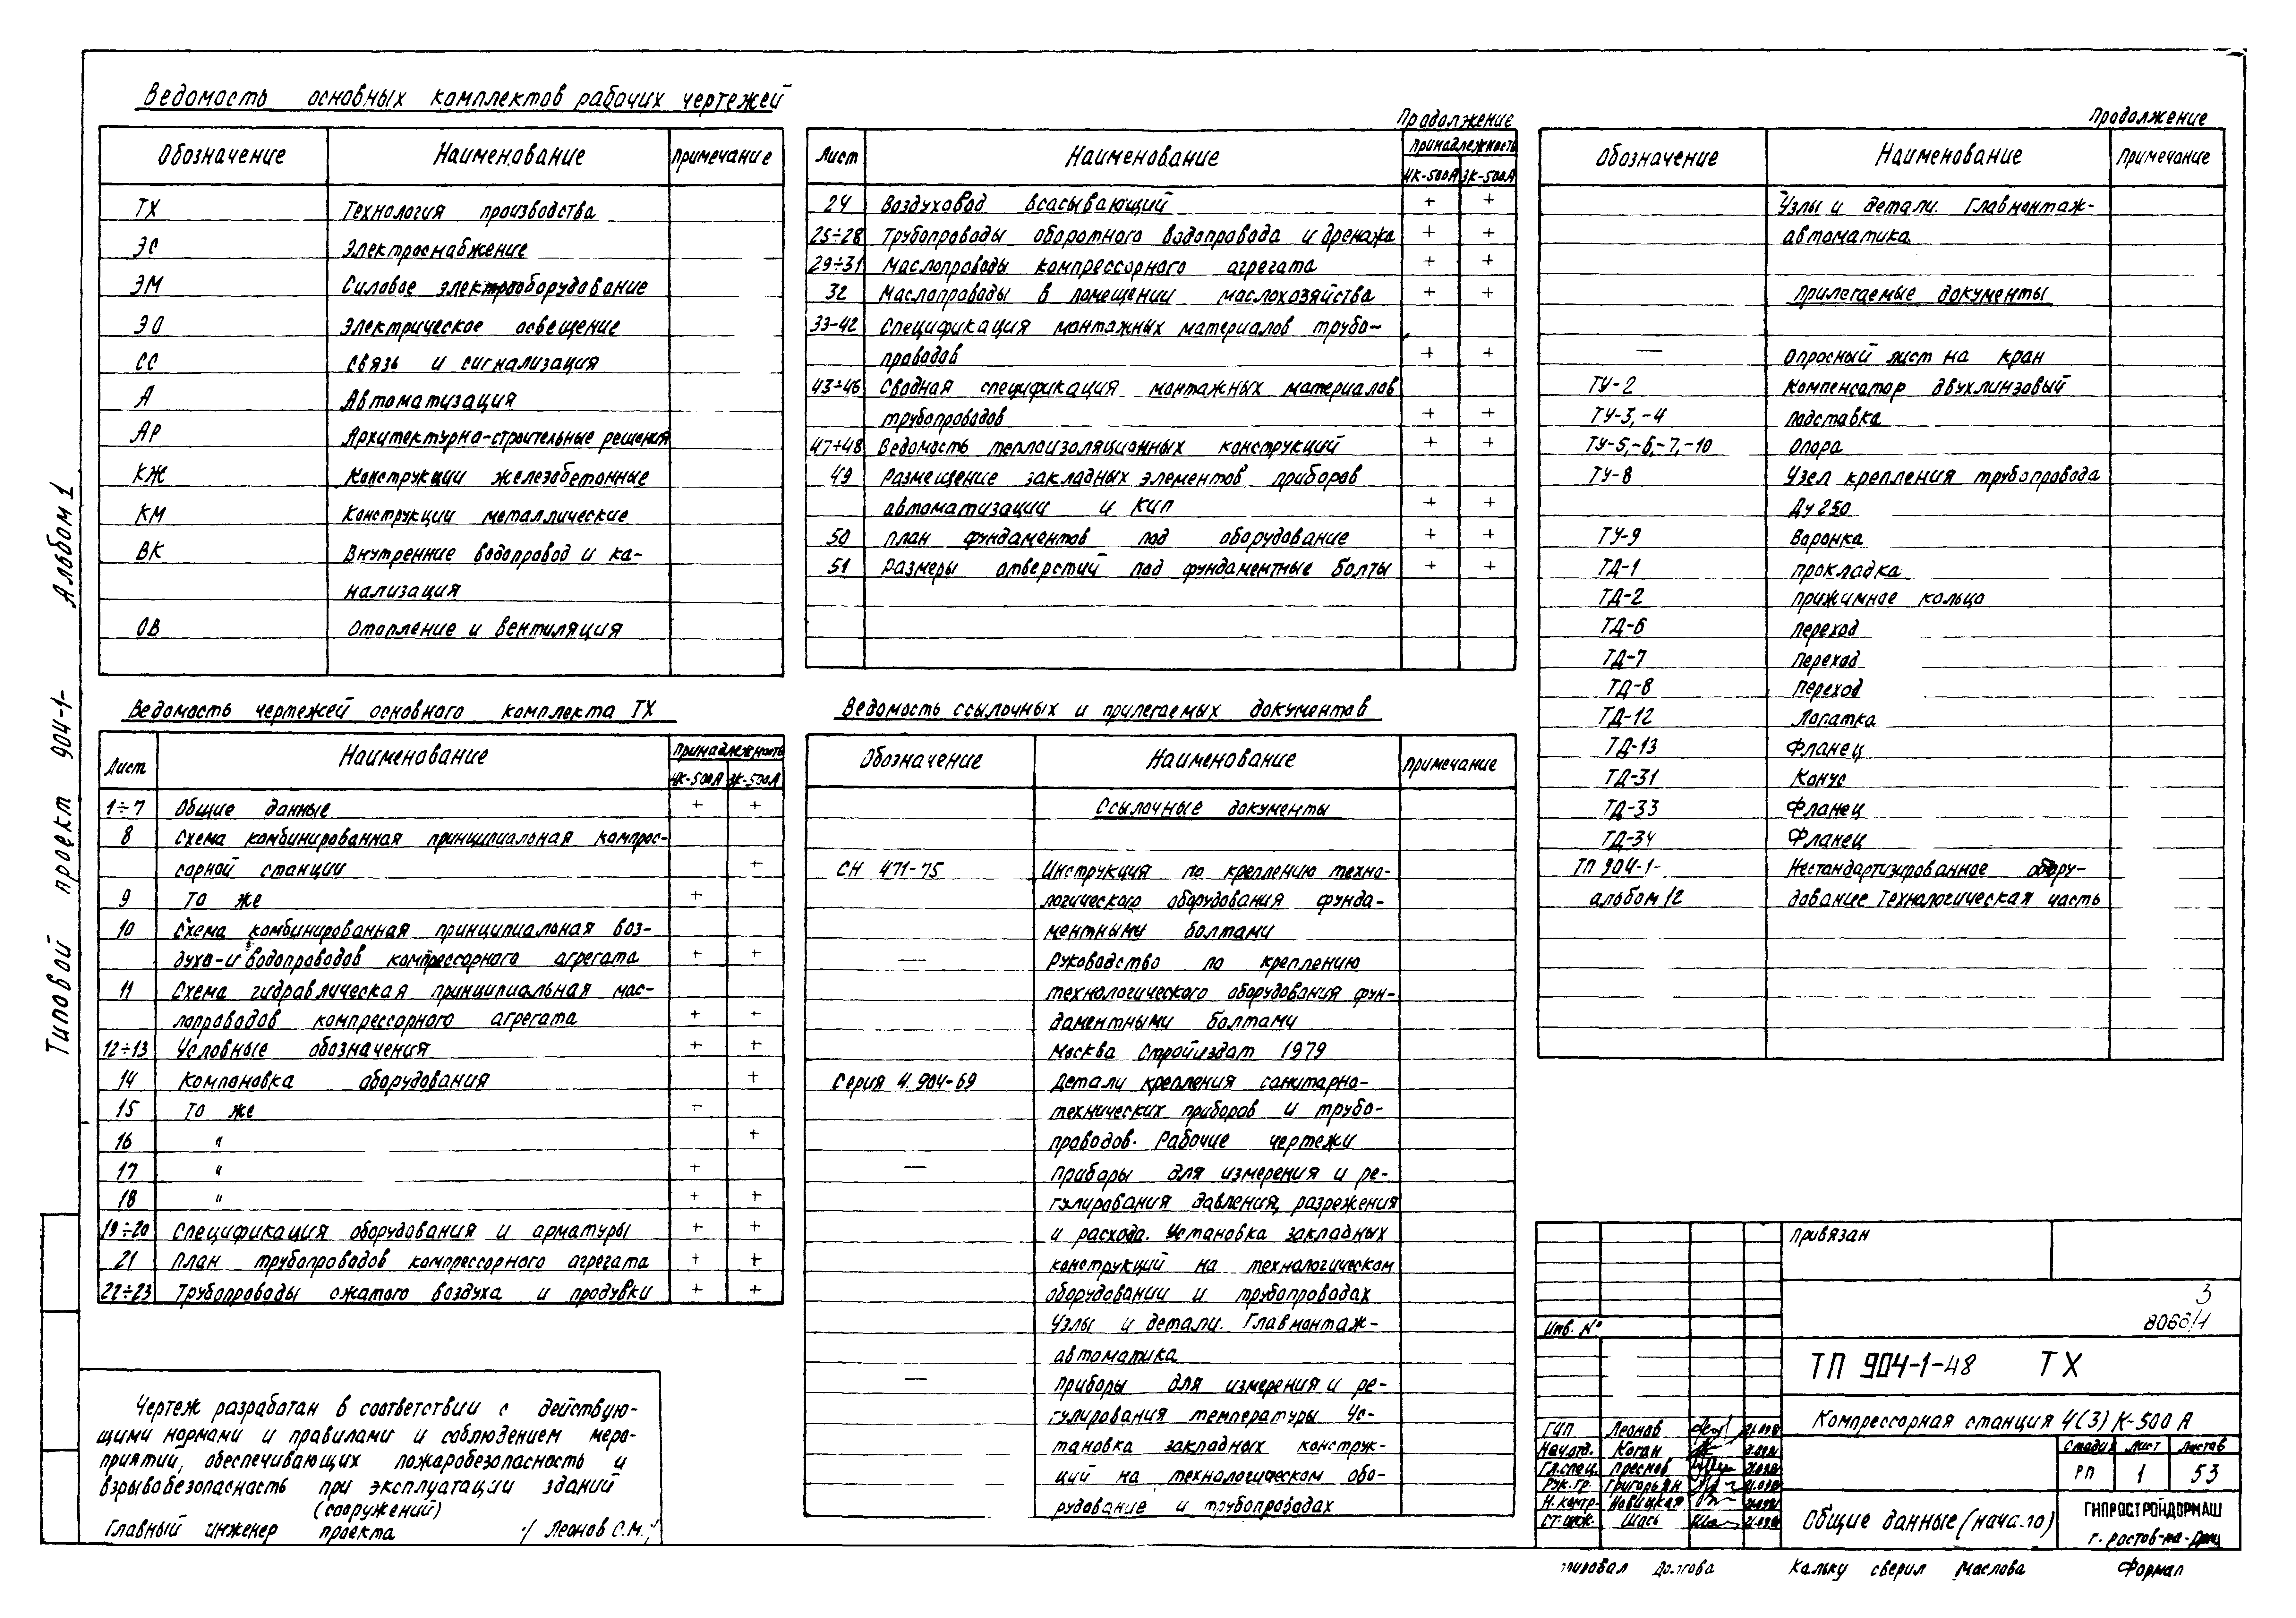 Типовой проект 904-1- Альбом 1
Ведомость основных комплектов рабочих чертежей
Обозначение Наименование Примечание
ТХ Технология производства
ЭС Электроснабжение
ЭМ Силовое электрооборудование
ЭО Электрическое освещение
СС Связь и сигнализация
А Автоматизация
АР Архитектурно-строительные решения
КЖ Конструкции железобетонные
КМ Конструкции металлические
ВК Внутренние водопровод и ка-
нализация
ОВ Отопление и вентиляция
Ведомость чертежей основного комплекта ТХ
Лист Наименование Принадлежность
4К-500А 3К-500А
1÷7 Общие данные + +
8 Схема комбинированная принципиальная компрес-
сорной станции +
9 То же +
10 Схема комбинированная принципиальная воз-
духо- и водопроводов компрессорного агрегата + +
11 Схема гидравлическая принципиальная мас-
лопроводов компрессорного агрегата + +
12÷13 Условные обозначения + +
14 Компоновка оборудования +
15 То же +
16 " +
17 " +
18 " + +
19÷20 Спецификация оборудования и арматуры + +
21 План трубопроводов компрессорного агрегата + +
22÷23 Трубопроводы сжатого воздуха и продувки + +
Чертеж разработан в соответствии с действую-
щими нормами и правилами и соблюдением меро-
приятий, обеспечивающих пожаробезопасность и
взрывобезопасность при эксплуатации зданий
(сооружений)
Главный инженер проекта /Леонов С.М./
Продолжение
Лист Наименование Принадлежность
4К-500А 3К-500А
24 Воздуховод всасывающий + +
25÷28 Трубопроводы оборотного водопровода и дренажа + +
29÷31 Маслопроводы компрессорного агрегата + +
32 Маслопроводы в помещении маслохозяйства + +
33-42 Спецификация монтажных материалов трубо-
проводов + +
43÷46 Сводная спецификация монтажных материалов
трубопроводов + +
47÷48 Ведомость теплоизоляционных конструкций + +
49 Размещение закладных элементов приборов
автоматизации и КИП + +
50 План фундаментов под оборудование + +
51 Размеры отверстий под фундаментные болты + +
Ведомость ссылочных и прилегаемых документов
Обозначение Наименование Примечание
Ссылочные документы
СН 471-75 Инструкция по креплению техно-
логического оборудования фунда-
ментными болтами
— Руководство по креплению
технологического оборудования фун-
даментными болтами
Москва Стройиздат 1979
Серия 4.904-69 Детали крепления санитарно-
технических приборов и трубо-
проводов. Рабочие чертежи
— Приборы для измерения и ре-
гулирования давления, разрежения
и расхода. Установка закладных
конструкций на технологическом
оборудовании и трубопроводах
Узлы и детали. Главмонтаж-
автоматика
— Приборы для измерения и ре-
гулирования температуры Ус-
тановка закладных конструк-
ций на технологическом обо-
рудование и трубопроводах
Продолжение
Обозначение Наименование Примечание
Узлы и детали. Главмонтаж-
автоматика
Прилегаемые документы
— Опросный лист на кран
ТУ-2 Компенсатор двухлинзовый
ТУ-3,-4 Подставка
ТУ-5,-6,-7,-10 Опора
ТУ-8 Узел крепления трубопровода
Ду 250
ТУ-9 Воронка
ТД-1 Прокладка
ТД-2 Прижимное кольцо
ТД-6 Переход
ТД-7 Переход
ТД-8 Переход
ТД-12 Лопатка
ТД-13 Фланец
ТД-31 Конус
ТД-33 Фланец
ТД-34 Фланец
ТП 904-1- Нестандартизированное обору-
альбом 12 дование Технологическая часть
Привязан
3
Инв. №
ТП 904-1-48 ТХ
Компрессорная станция 4(3) К-500 А
ГИП Леонов
Нач.отд. Коган
Гл.спец. Преснов
Рук.гр. Григорьян
Н.контр. Новицкая
Ст.инж. Шась
Стадия Лист Листов
РП 1 53
Общие данные (начало)
ГИПРОСТРОЙДОРМАШ
г. Ростов-на-Дону
Долгова Кальку сверил Маслова Формат